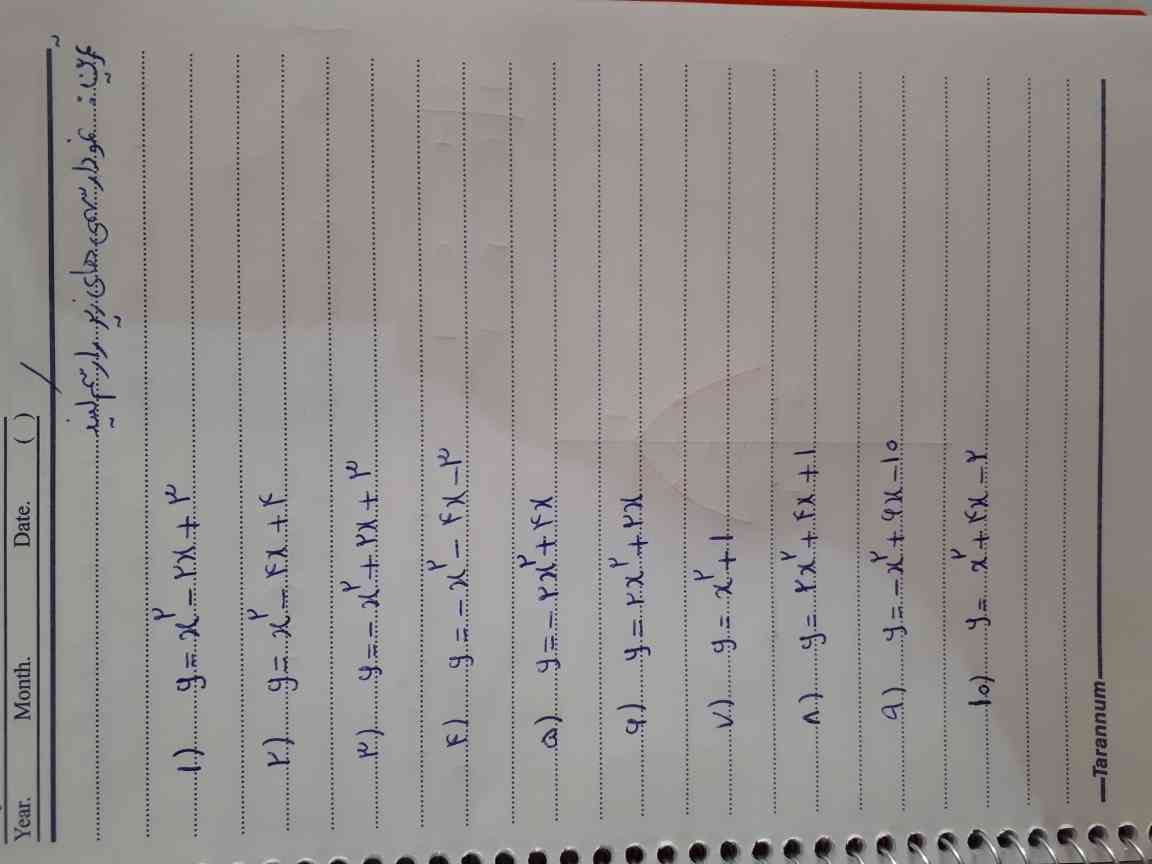 Year. Month. Date. ( )
تمرین: نمودار سهمی‌های زیر را رسم کنید
۱) y = x² - ۲x + ۳
۲) y = x² - ۴x + ۴
۳) y = -x² + ۲x + ۳
۴) y = -x² - ۴x - ۳
۵) y = -۲x² + ۴x
۶) y = ۲x² + ۲x
۷) y = x² + ۱
۸) y = ۲x² + ۴x + ۱
۹) y = -x² + ۶x - ۱۰
۱۰) y = x² + ۴x - ۲
Tarannum